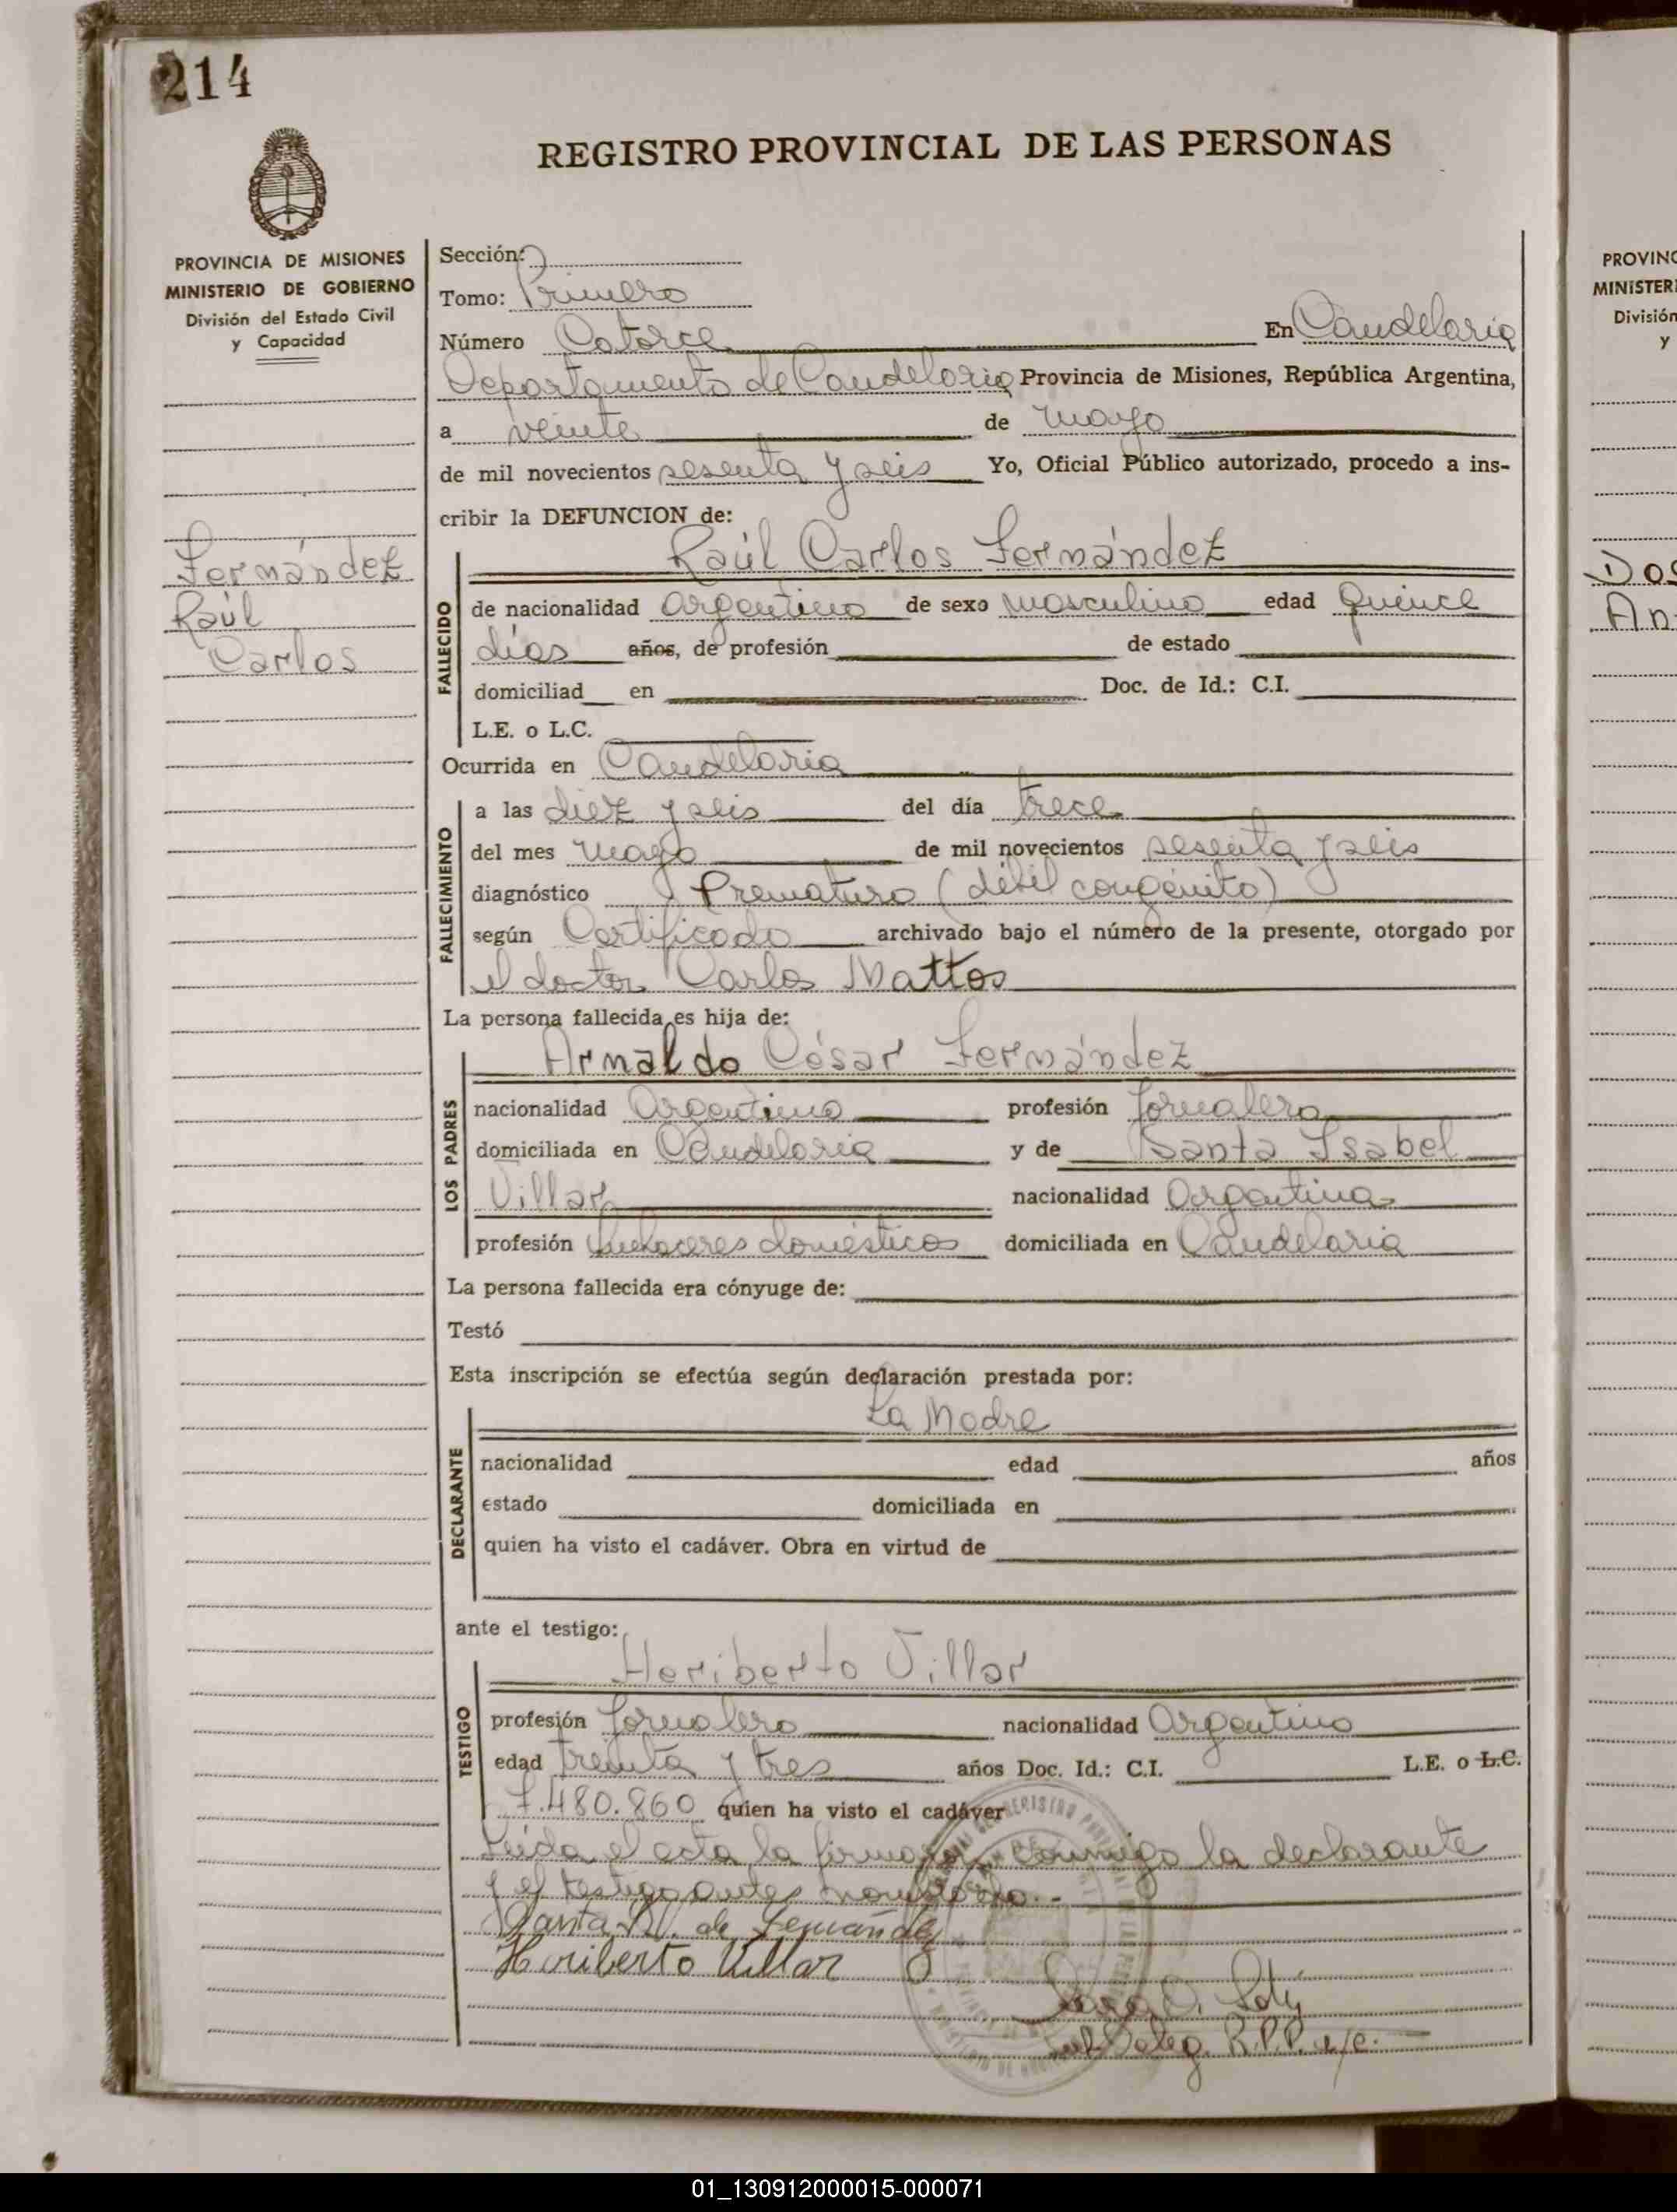 214
REGISTRO PROVINCIAL DE LAS PERSONAS
PROVINCIA DE MISIONES
MINISTERIO DE GOBIERNO
División del Estado Civil
y Capacidad
Fernández
Raúl
Carlos
Sección:
Tomo: Primero
Número Catorce En Candelaria
Departamento de Candelaria Provincia de Misiones, República Argentina,
a veinte de mayo
de mil novecientos sesenta y seis Yo, Oficial Público autorizado, procedo a ins-
cribir la DEFUNCION de:
Raúl Carlos Fernández
FALLECIDO
de nacionalidad argentino de sexo masculino edad quince
días años, de profesión de estado
domiciliad en Doc. de Id.: C.I.
L.E. o L.C.
Ocurrida en Candelaria
FALLECIMIENTO
a las diez y seis del día trece
del mes mayo de mil novecientos sesenta y seis
diagnóstico Prematuro (débil congénito)
según Certificado archivado bajo el número de la presente, otorgado por
el doctor Carlos Mattos
La persona fallecida es hija de:
Arnaldo César Fernández
LOS PADRES
nacionalidad argentino profesión Jornalero
domiciliada en Candelaria y de Santa Isabel
Villar nacionalidad Argentina
profesión Quehaceres domésticos domiciliada en Candelaria
La persona fallecida era cónyuge de:
Testó
Esta inscripción se efectúa según declaración prestada por:
La Madre
DECLARANTE
nacionalidad edad años
estado domiciliada en
quien ha visto el cadáver. Obra en virtud de
ante el testigo:
Heriberto Villar
TESTIGO
profesión Jornalero nacionalidad Argentino
edad treinta y tres años Doc. Id.: C.I. L.E. o L.C.
7.480.860 quien ha visto el cadáver
Leída el acta la firma conmigo la declarante
y el testigo antes nombrado.-
Santa I.V. de Fernández
Heriberto Villar
Sub Deleg. R.P.P. a/c.
PROVINC
MINISTERI
División
y
Dos
An
01_130912000015-000071